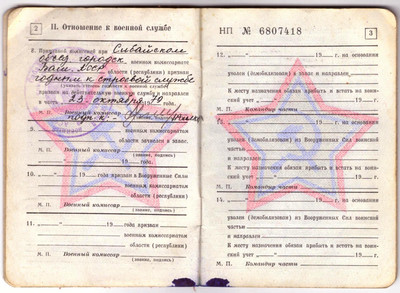 2
II. Отношение к военной службе
8. Призывной комиссией при Сибайском
объед. городск. военном комиссариате
Баш. АССР области (республики) признан
годным к строевой службе
призван на действительную военную службу и направлен
в часть 23 октября 19 года.
М. П. Военный комиссар
подп-к
9.
военным комиссариатом
области зачислен в запас.
М. П. Военный комиссар
(звание, подпись)
„ “ 19 года.
10. „ “ 19 г. призван в Вооруженные Силы
военным комиссариатом
области (республики)
М. П. Военный комиссар
(звание, подпись)
11. „ “ 19 года призван
военным комиссариатом
области (республики)
М. П. Военный комиссар
(звание, подпись)
НП № 6807418
3
12. „ “ 19 г. на основании
уволен (демобилизован) в запас и направлен
К месту назначения обязан прибыть и встать на воинский учет „ “ 19 г.
М. П. Командир части
13. „ “ 19 г. на основании
уволен (демобилизован) из Вооруженных Сил воинской
частью
и направлен в
К месту назначения обязан прибыть и встать на воинский
учет „ “ 19 г.
М. П. Командир части
14. „ “ 19 г. на основании
уволен (демобилизован) из Вооруженных Сил воинской
частью
и направлен
К месту назначения обязан прибыть и встать на воинский
учет „ “ 19 г.
М. П. Командир части